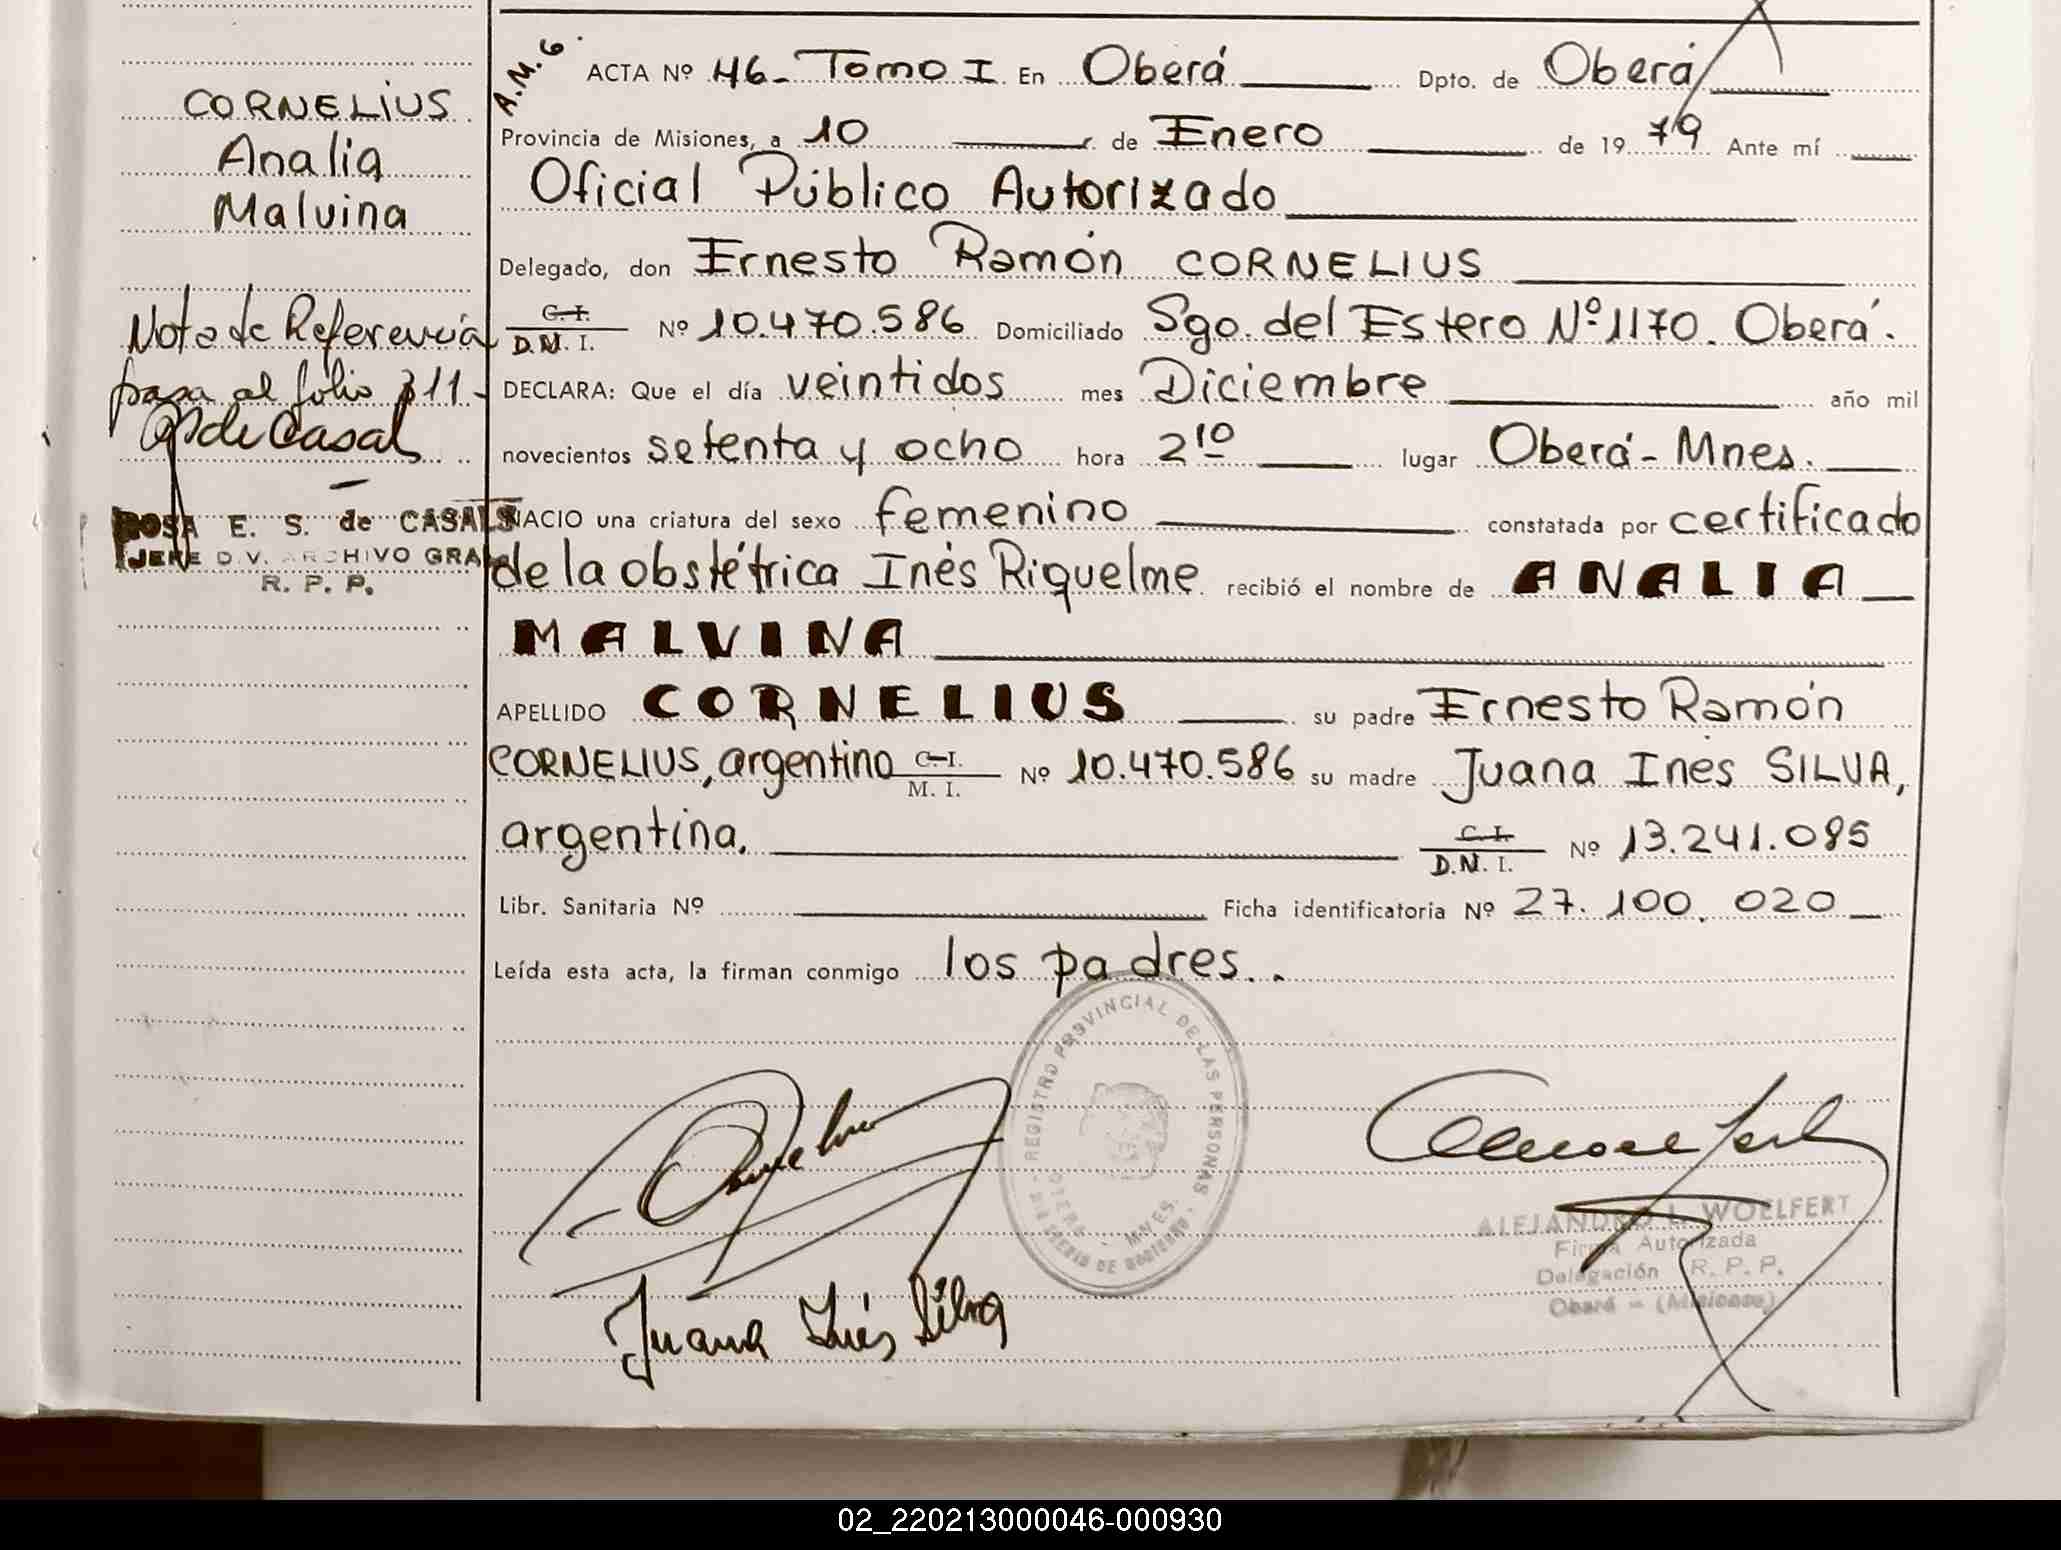 CORNELIUS
Analia
Malvina
Nota de Referencia
pasa al folio 311-
ROSA E. S. de CASALS
JEFE DIV. ARCHIVO GRAL
R. P. P.
A.M.G.
ACTA Nº 46- Tomo I En Oberá Dpto. de Oberá
Provincia de Misiones, a 10 de Enero de 1979 Ante mí
Oficial Público Autorizado
Delegado, don Ernesto Ramón CORNELIUS
C. I.
D.N. I. Nº 10.470.586 Domiciliado Sgo. del Estero Nº 1170. Oberá.
DECLARA: Que el día veintidos mes Diciembre año mil
novecientos setenta y ocho hora 2 10 lugar Oberá- Mnes.
NACIO una criatura del sexo femenino constatada por certificado
de la obstétrica Inés Riquelme recibió el nombre de ANALIA
MALVINA
APELLIDO CORNELIUS su padre Ernesto Ramón
CORNELIUS, argentino C. I.
M. I. Nº 10.470.586 su madre Juana Inés SILVA,
argentina. C. I.
D.N. I. Nº 13.241.085
Libr. Sanitaria Nº Ficha identificatoria Nº 27.100.020
Leída esta acta, la firman conmigo los padres..
REGISTRO PROVINCIAL DE LAS PERSONAS
OBERA - MNES.
Juana Inés Silva
ALEJANDRO L. WOELFERT
Firma Autorizada
Delegación R. P. P.
Oberá - (Misiones)
02_220213000046-000930